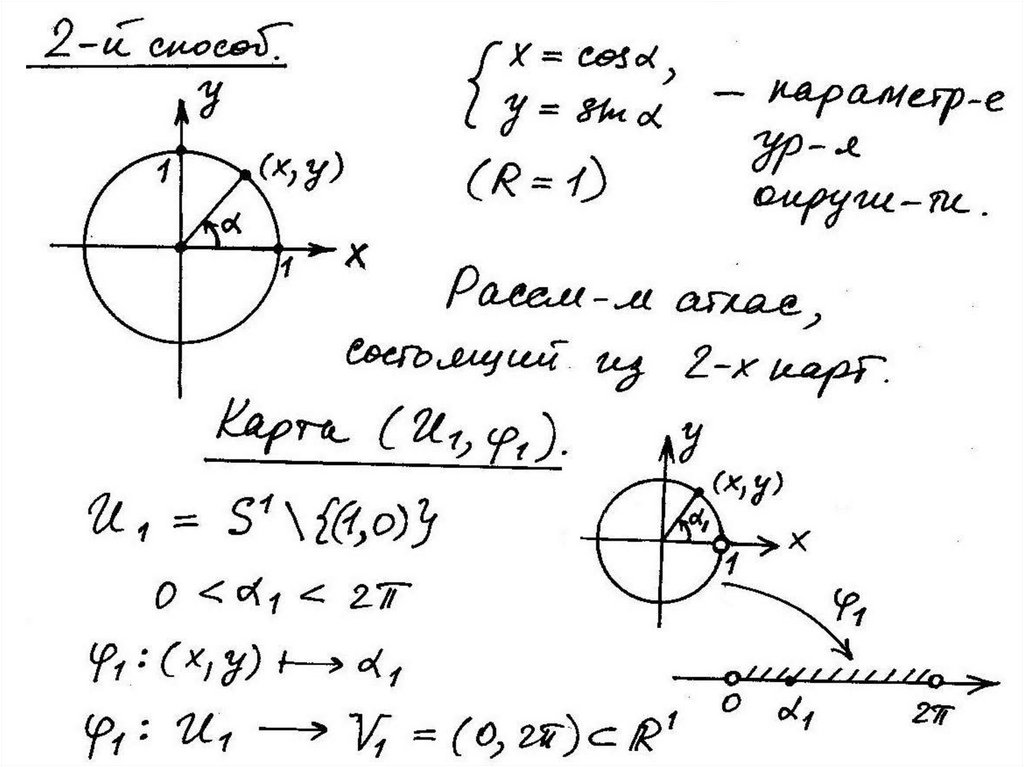 2-й способ.
{ x = cosα,
y = sinα
(R = 1)
– параметр-е
ур-я
окружн-ти.
y
1
(x, y)
α
1
x
Рассм-м атлас,
состоящий из 2-х карт.
Карта (U₁, φ₁).
U₁ = S¹ \ {(1,0)}
0 < α₁ < 2π
φ₁ : (x, y) ↦ α₁
φ₁ : U₁ → V₁ = (0, 2π) ⊂ ℝ¹
y
(x, y)
α₁
1
x
φ₁
0 α₁ 2π